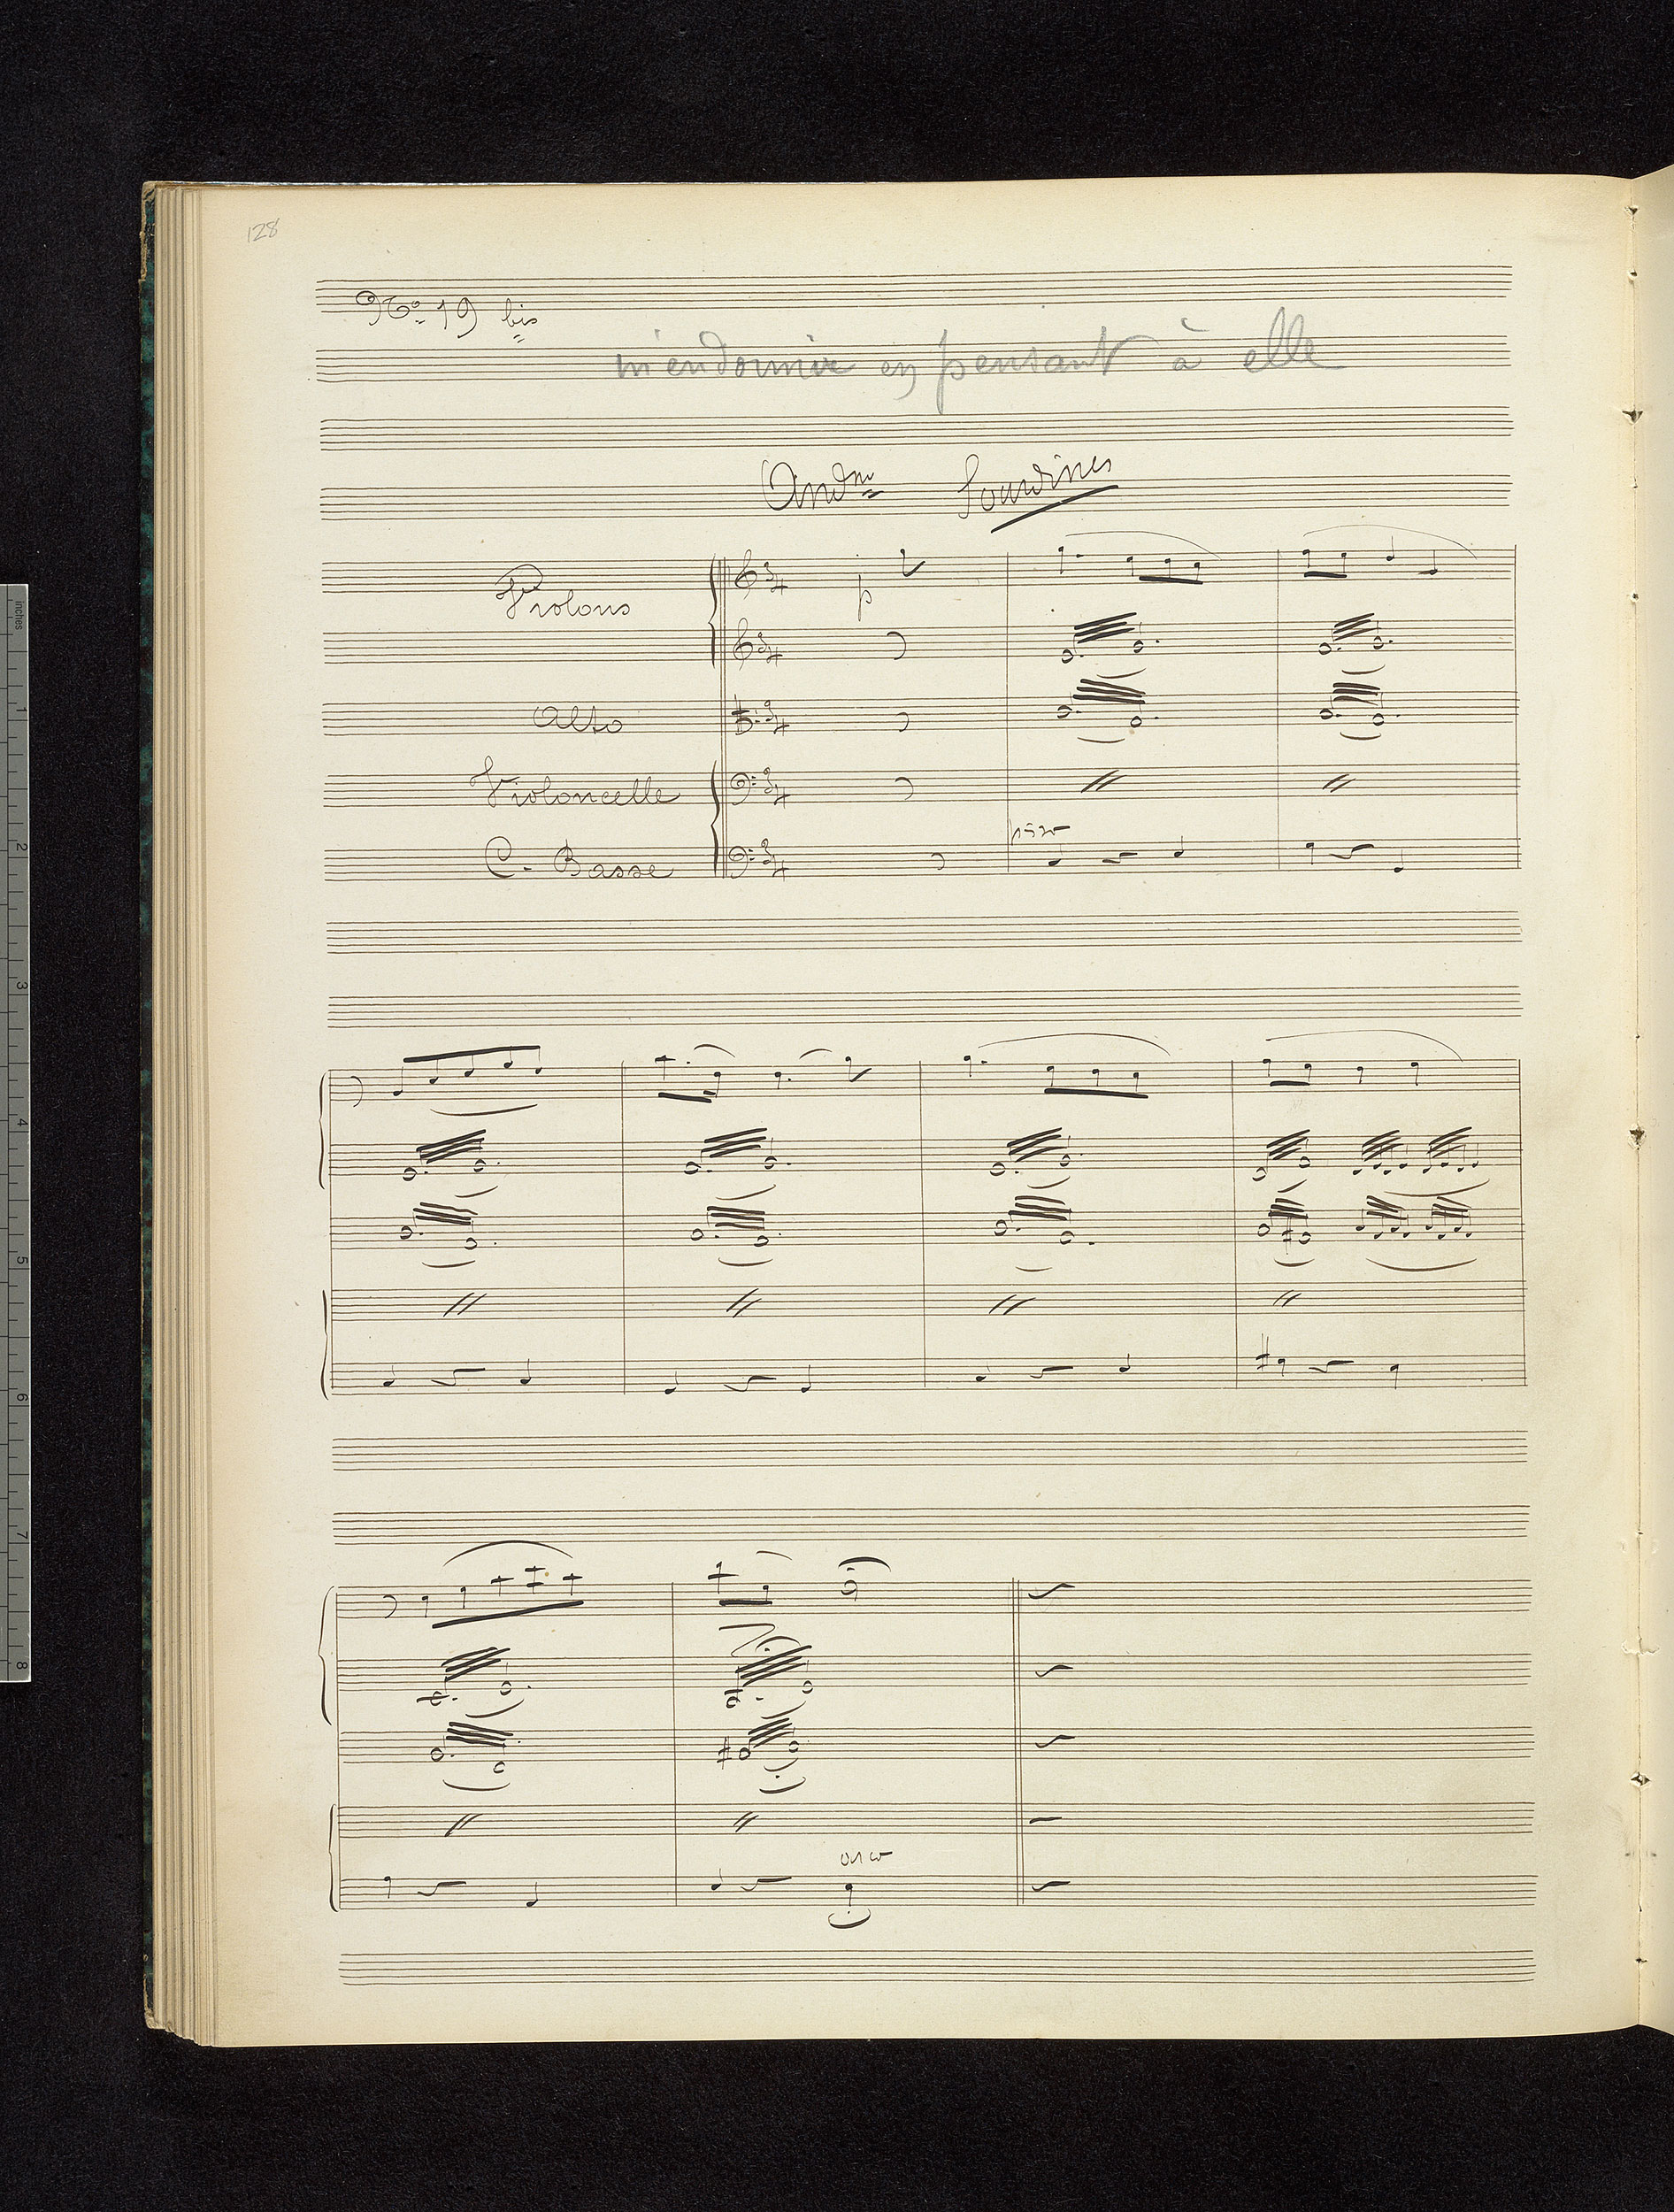 128
No 19 bis
m'endormir en pensant à elle
Andno Sourdines
Violons
p
Alto
Violoncelle
pizz
C. Basse
arco
inches
1
2
3
4
5
6
7
8